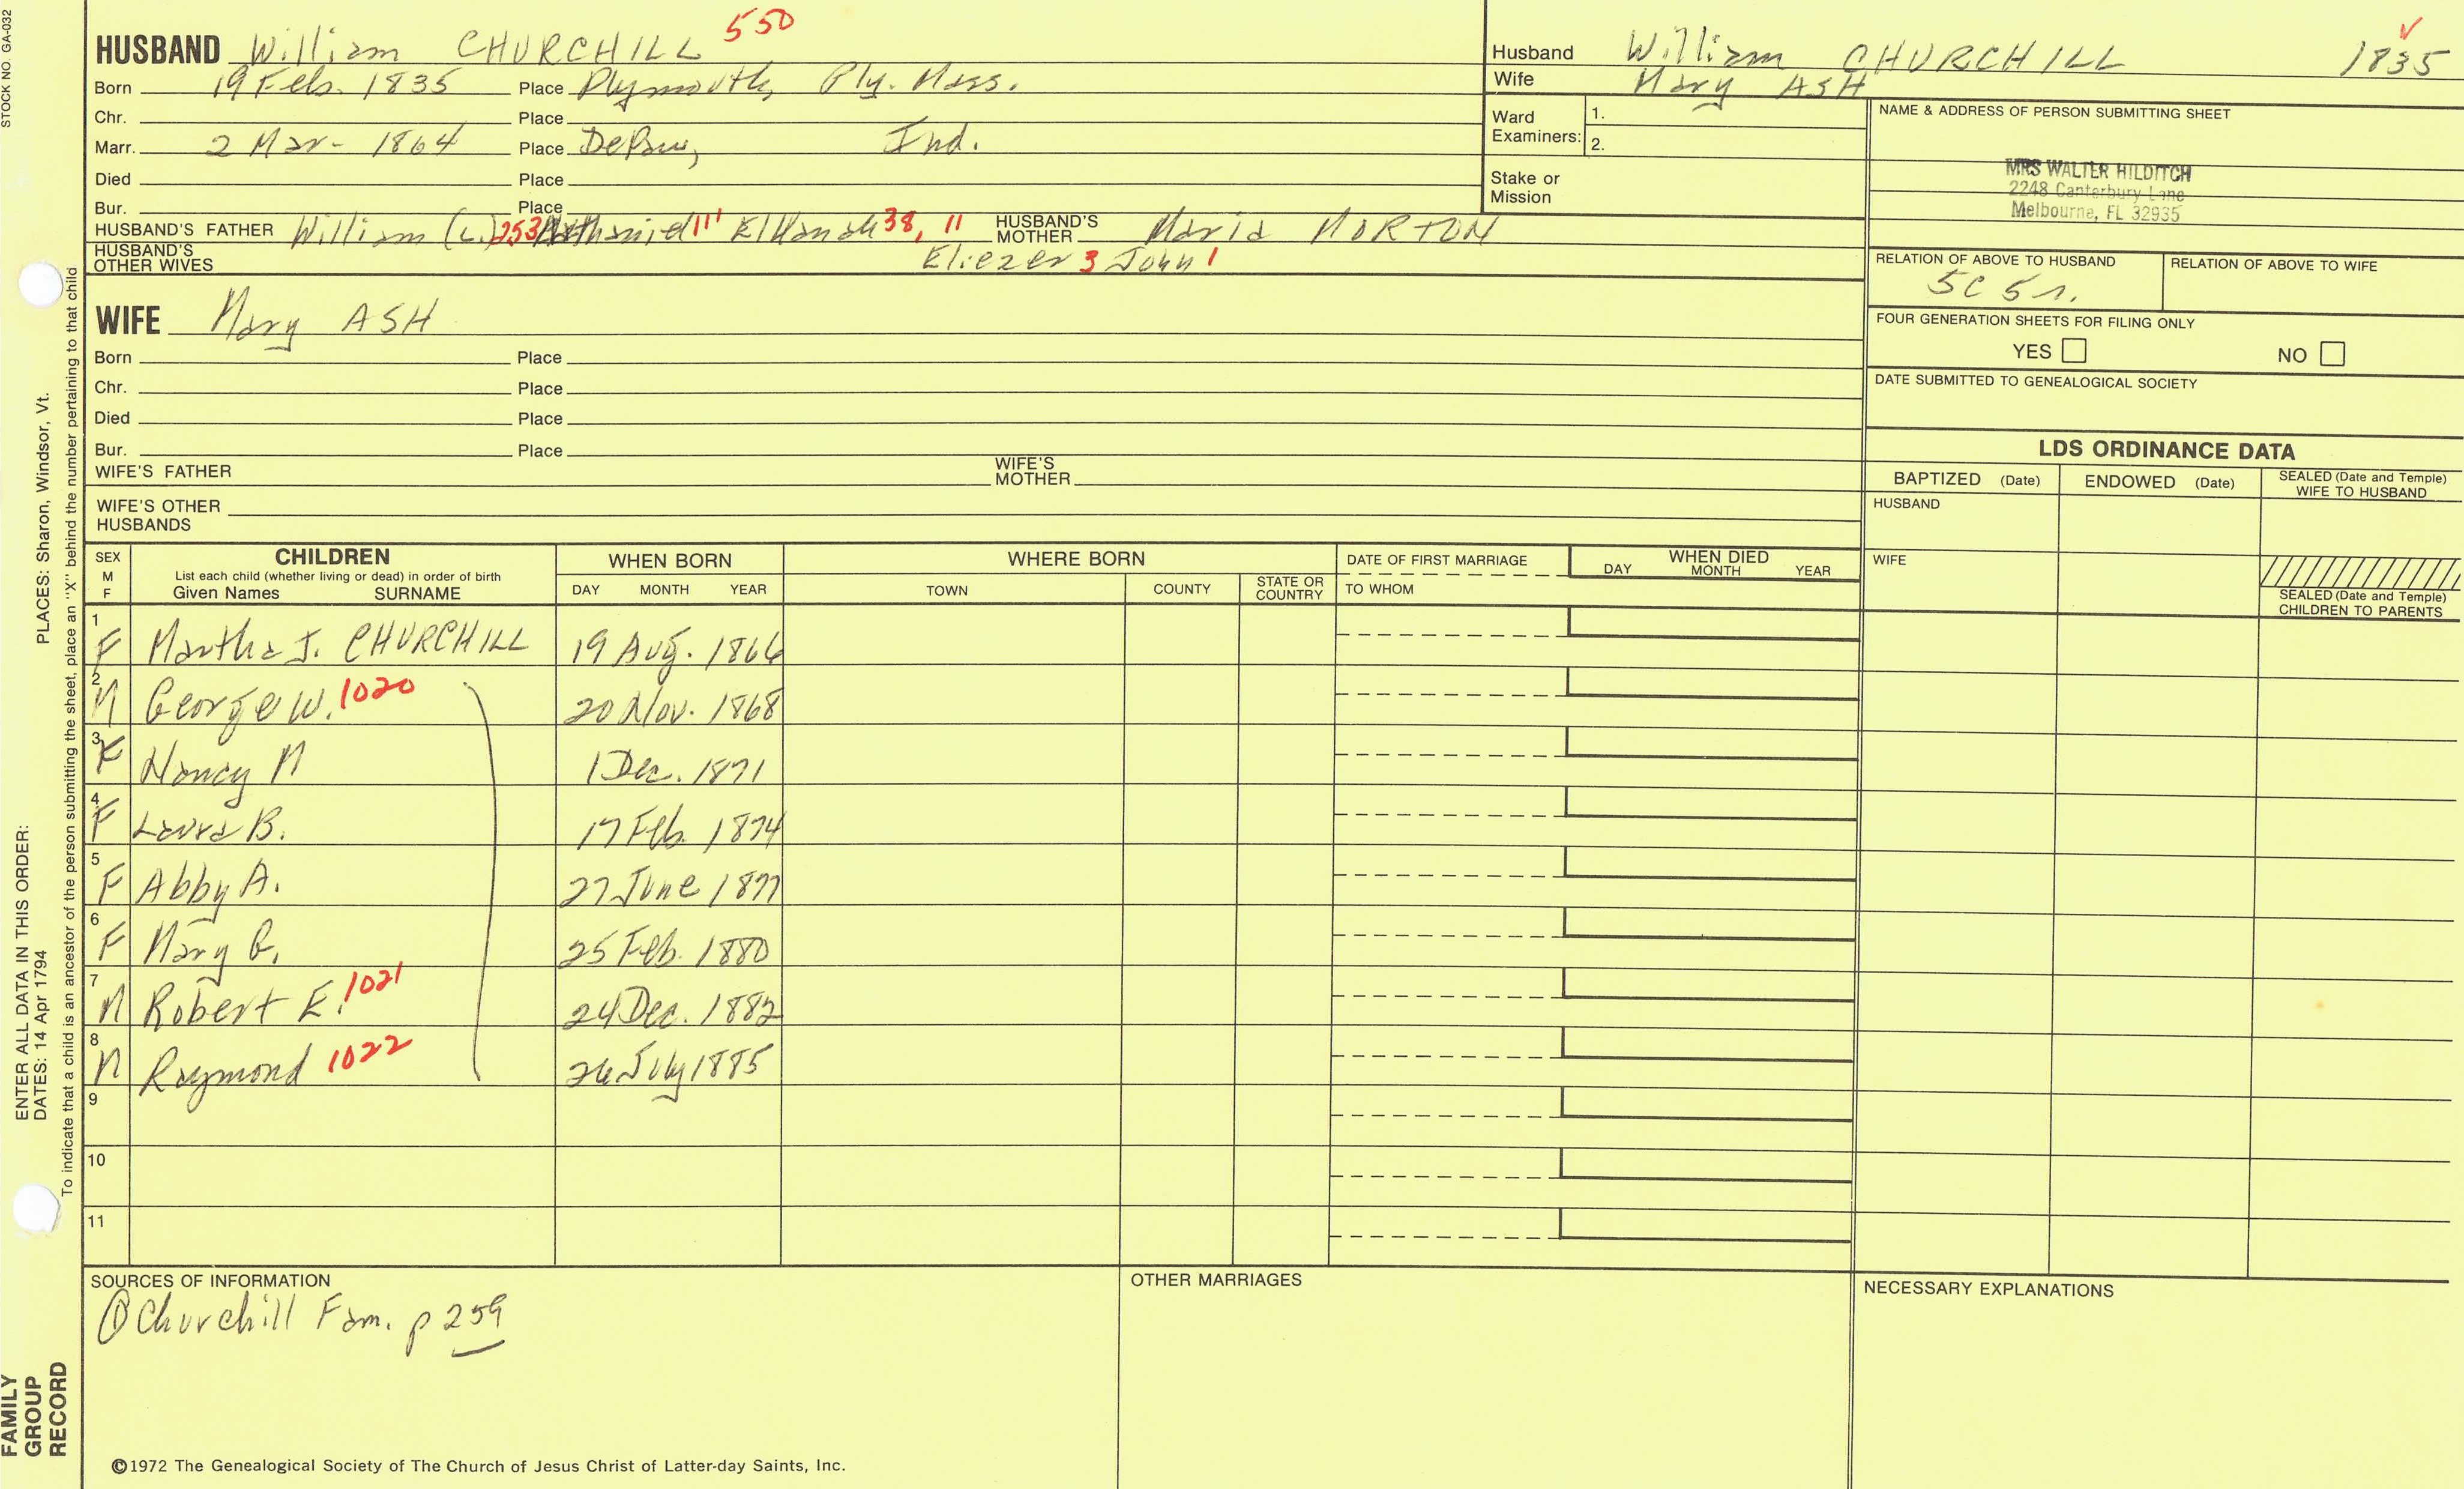 STOCK NO. GA-032
HUSBAND William CHURCHILL 550
Born 19 Feb. 1835 Place Plymouth, Ply. Mass.
Chr. Place
Marr. 2 Mar - 1864 Place Ind.
Died Place
Bur. Place
HUSBAND'S FATHER William (L.) 253 Nathaniel 111 Elkanah 38, 11 HUSBAND'S MOTHER Maria MORTON
HUSBAND'S OTHER WIVES Eliezer 3 John 1
WIFE Mary ASH
Born Place
Chr. Place
Died Place
Bur. Place
WIFE'S FATHER WIFE'S MOTHER
WIFE'S OTHER HUSBANDS
Husband William CHURCHILL 1835
Wife Mary ASH
Ward Examiners: 1.
2.
Stake or Mission
NAME & ADDRESS OF PERSON SUBMITTING SHEET
MRS WALTER HILDITCH
2248 Canterbury Lane
Melbourne, FL 32935
RELATION OF ABOVE TO HUSBAND RELATION OF ABOVE TO WIFE
5C 5r.
FOUR GENERATION SHEETS FOR FILING ONLY
YES NO
DATE SUBMITTED TO GENEALOGICAL SOCIETY
LDS ORDINANCE DATA
BAPTIZED (Date) ENDOWED (Date) SEALED (Date and Temple) WIFE TO HUSBAND
HUSBAND
WIFE
SEALED (Date and Temple) CHILDREN TO PARENTS
SEX M F CHILDREN WHEN BORN WHERE BORN DATE OF FIRST MARRIAGE WHEN DIED
List each child (whether living or dead) in order of birth
Given Names SURNAME DAY MONTH YEAR TOWN COUNTY STATE OR COUNTRY TO WHOM DAY MONTH YEAR
1 F Martha J. CHURCHILL 19 Aug. 1866
2 M George W. 1020 20 Nov. 1868
3 F Nancy M 1 Dec. 1871
4 F Laura B. 17 Feb. 1874
5 F Abby A. 27 June 1877
6 F Mary G. 25 Feb. 1880
7 M Robert E. 1021 24 Dec. 1882
8 M Raymond 1022 26 July 1885
9
10
11
SOURCES OF INFORMATION OTHER MARRIAGES NECESSARY EXPLANATIONS
① Churchill Fam. p 259
©1972 The Genealogical Society of The Church of Jesus Christ of Latter-day Saints, Inc.
ENTER ALL DATA IN THIS ORDER: PLACES: Sharon, Windsor, Vt.
DATES: 14 Apr 1794
To indicate that a child is an ancestor of the person submitting the sheet, place an "X" behind the number pertaining to that child
FAMILY
GROUP
RECORD